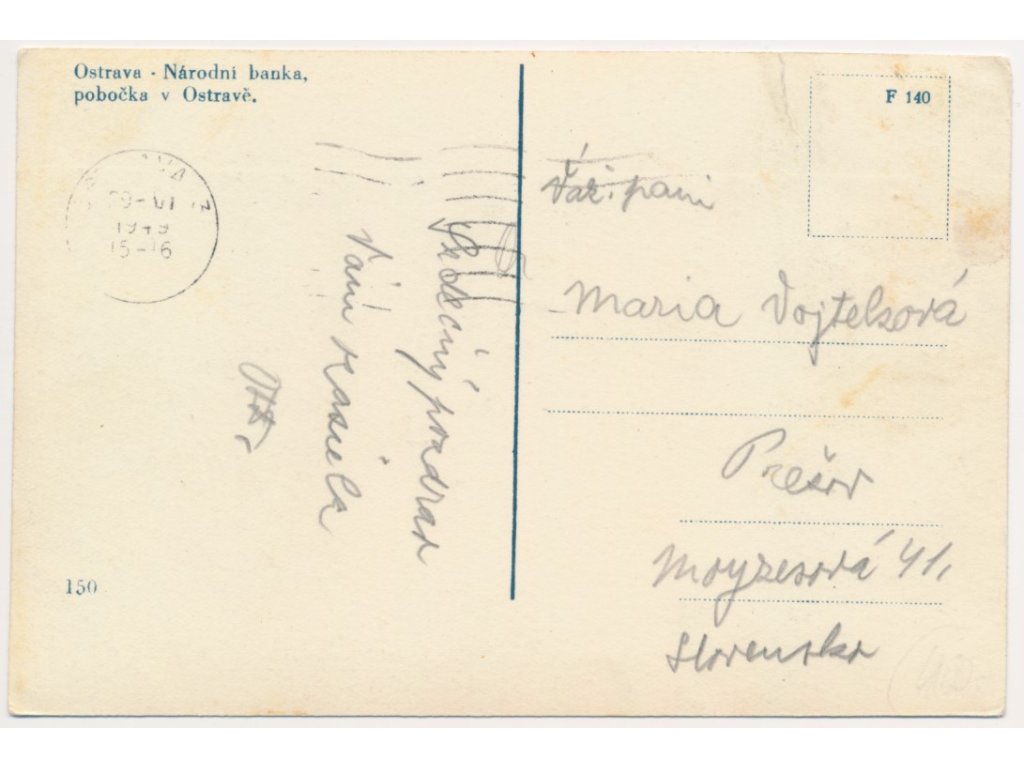 Ostrava · Národní banka,
pobočka v Ostravě.
F 140
29-VI
1949
15-16
Srdečný pozdrav
Vám zasiela
Váž. pani
Maria Vojtelsová
Prešov
Moyzesová 41,
Slovensko
150